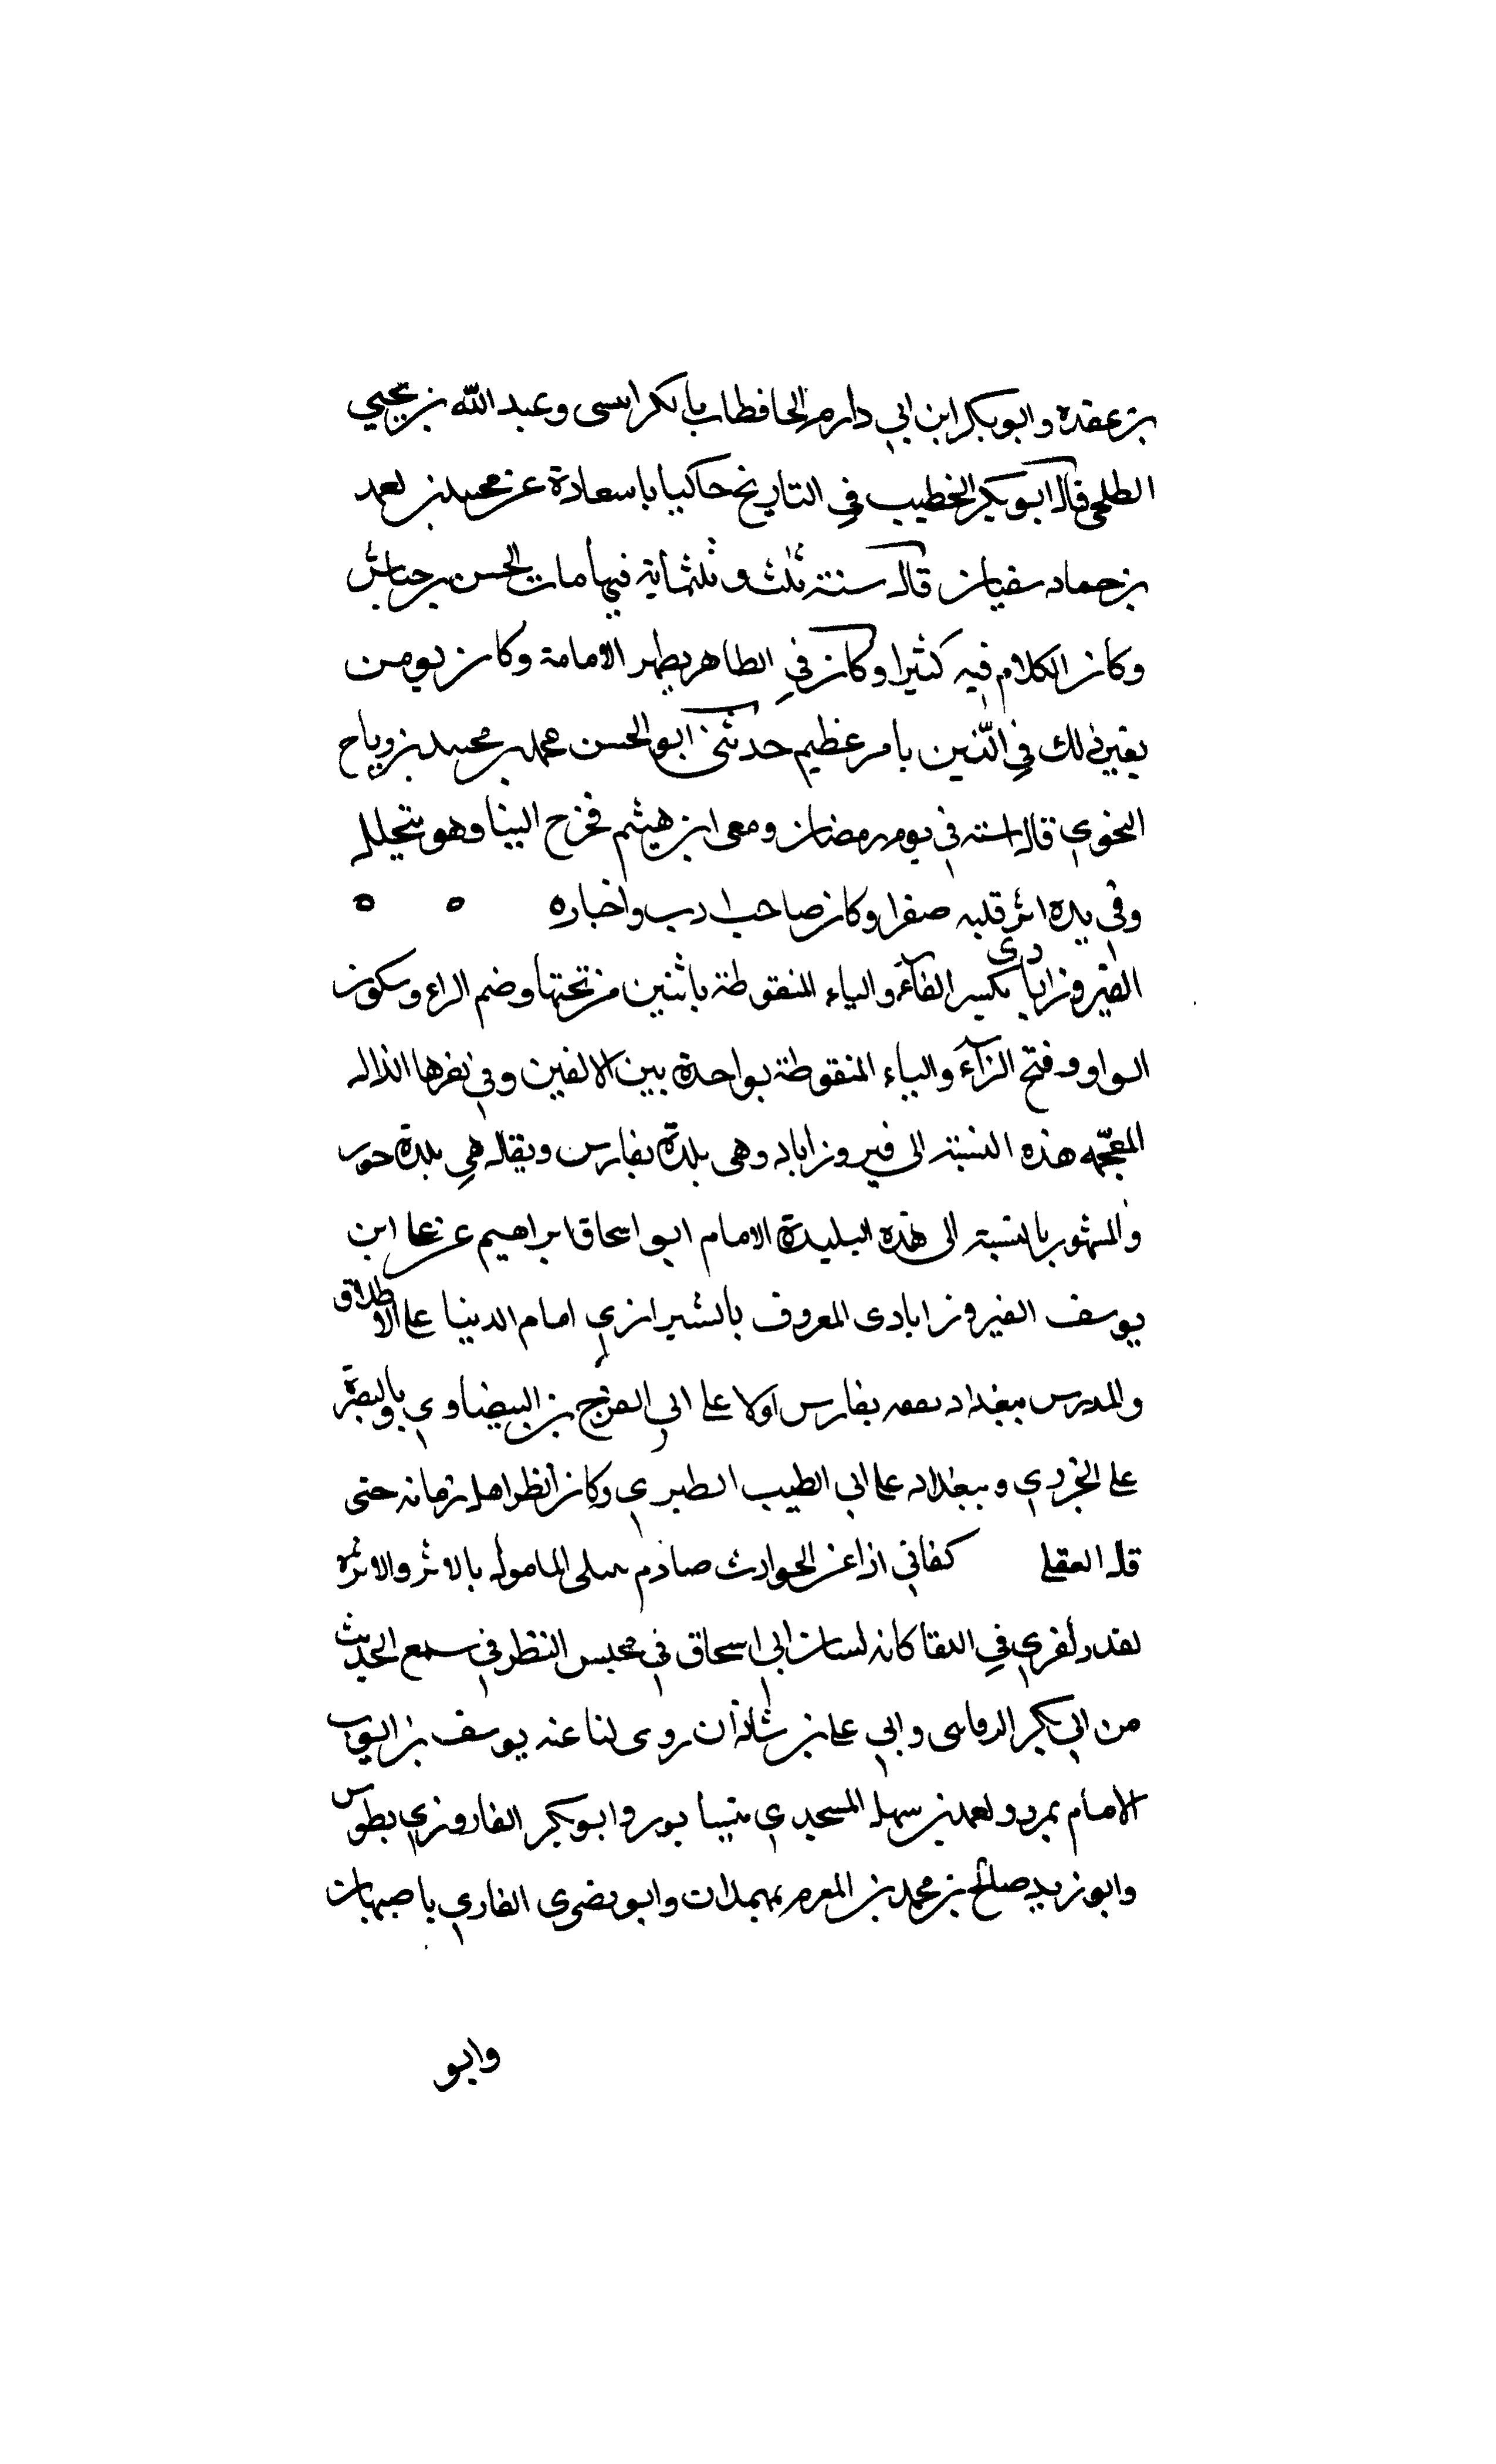 بن عقدة وابو بكر ابن ابي دارم الحافظان يا بكر ابسى وعبد الله بن يحيي
الطلحي قال ابو بكر الخطيب في التاريخ حاكيا باسعادة عن محمد بن لعمد
بن حماد سفيان قال سنة ثلث وثلثماية فيها مات الحسن بن حباش
وكان الكلام فيه كثيرا وكان في الظاهر يظهر الامامة وكان يومن
بغير ذلك في الدين بامر عظيم حدثني ابو الحسن محمد بن محمد بن رياح
النحوي قال استه في يوم رمضان ومعى ابن هيثم فخرج الينا وهو يتخلل
وفي يده اثر قلبه صفرا وكان صاحب ادب واخباره ه ه
الفيروزابادي بكسر الفآء والياء المنقوطة باثنين من تحتها وضم الراء وسكون
الواو وفتح الزآء والباء المنقوطة بواحدة بين الالفين وفي نفرها الذال
المعجمه هذه النسبة الى فيروزاباد وهى بلدة بفارس ويقال هي بلدة جور
والمشهور بالنسبة الى هذه البليدة الامام ابو اسحاق ابراهيم عن على ابن
يوسف الفيروزابادى المعروف بالشيرازي امام الدينا على الاطلاق
والمدرس ببغداد تفقه بفارس اولا على ابي الفرج بن البيضاوي وبالبصرة
على الخرزي وببغداد على ابي الطيب الطبري وكان انظر اهل زمانه حتى
قال العقلي كفاني اذا عن الحوادث صارم ينيلى المامول بالاثر والاثره
يقد ويفري في اللقا كانه لسان ابي اسحاق في مجلس النظر في سمع الحديث
من ابي بكر البرقاني وابي على بن شاذان روى لنا عنه يوسف بن ايوب
الامام بمرو ولعمد بن سهل المسجدي بنيسابور وابو بكر الفاروزي بطوس
وابو زيد صالح بن محمد بن المعرم بهمدان وابو نضرى الفازي باصبهان
وابو